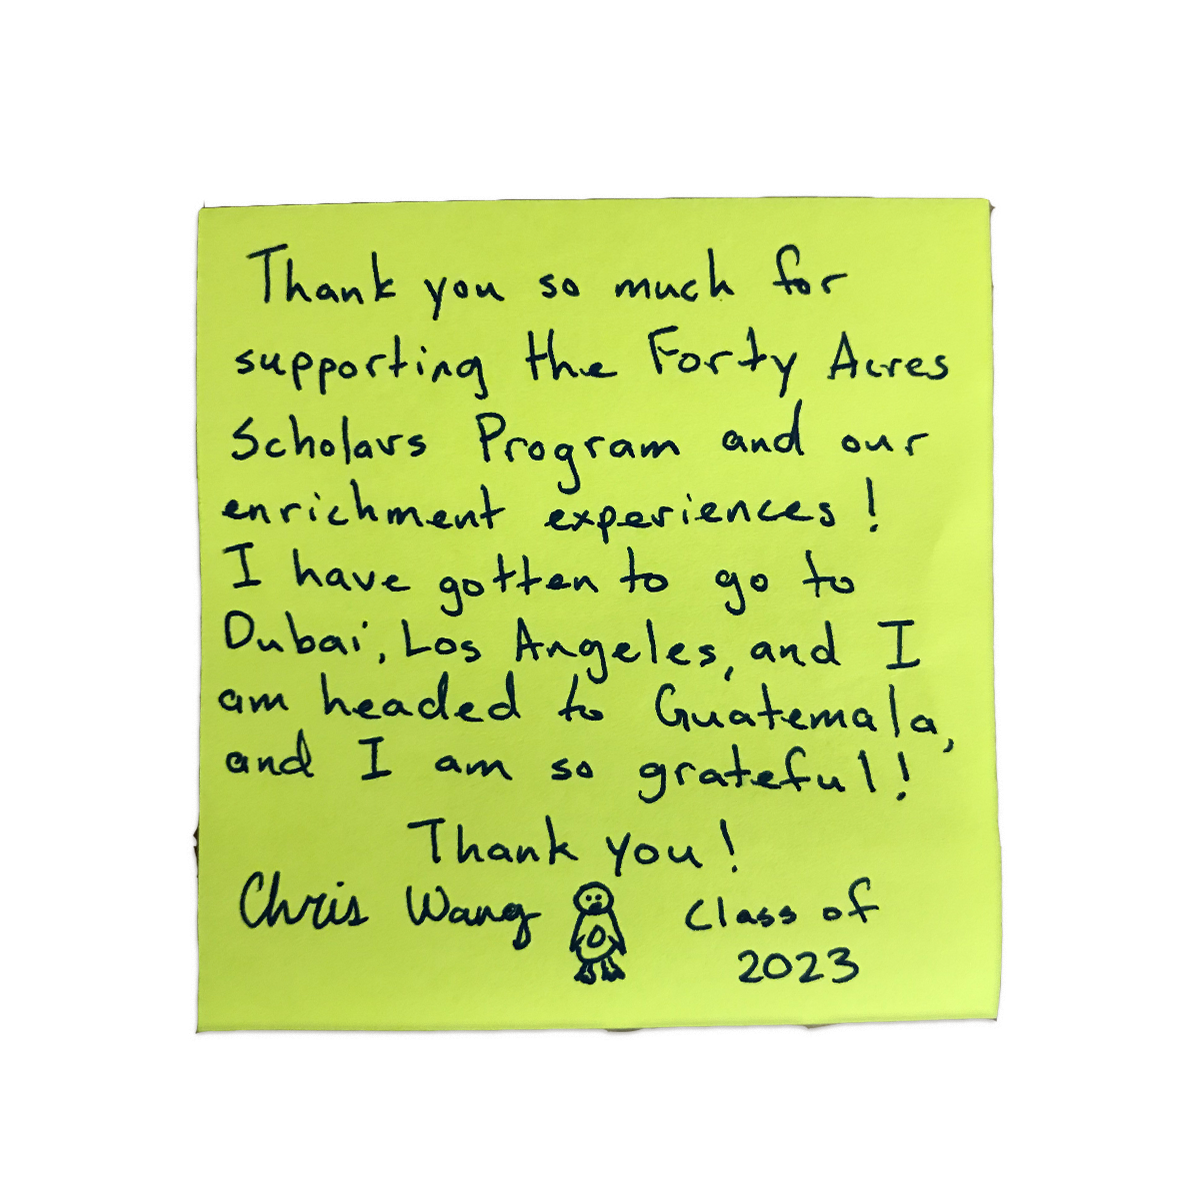 Thank you so much for
supporting the Forty Acres
Scholars Program and our
enrichment experiences!
I have gotten to go to
Dubai, Los Angeles, and I
am headed to Guatemala,
and I am so grateful!
Thank you!
Chris Wang Class of
2023